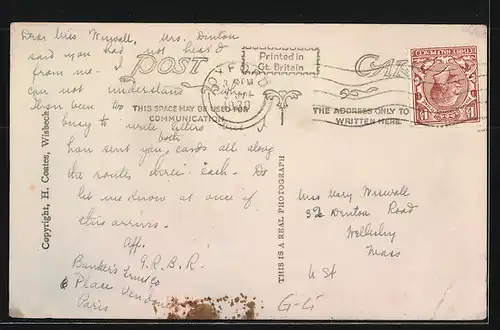 Dear Miss Wiswall, Mrs. Denton
said you had not heard
from me - I
can not understand
have been too
busy to write letters but I
have sent you both cards all along
the route thrice each. Do
let me know at once if
this arrives.
Aff.
G.R.B.R.
Bankers Trust Co
Place Vendome
Paris
POST CARD
Printed in
Gt. Britain
THIS SPACE MAY BE USED FOR
COMMUNICATION
THE ADDRESS ONLY TO BE
WRITTEN HERE
OXFORD
1930
Copyright, H. Coates, Wisbech
THIS IS A REAL PHOTOGRAPH
Miss Mary Wiswall
Denton Road
Wellesley
Mass
U St
G-G